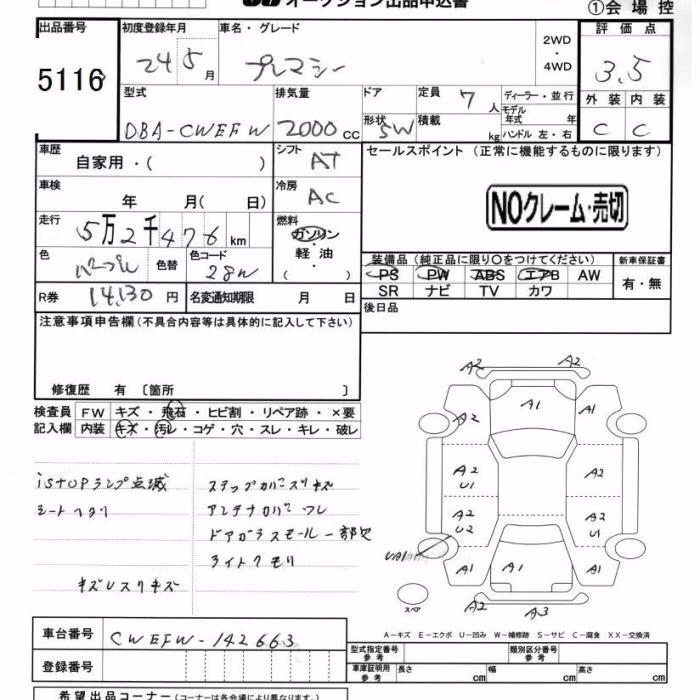 オークション出品申込書
①会場控
出品番号 5116
初度登録年月 24 5月
車名・グレード プレマシー
2WD・4WD
評価点 3.5
型式 DBA-CWEFW
排気量 2000cc
ドア 形状 5W
定員 7人
積載 kg
ディーラー・並行
モデル年式 年
ハンドル 左・右
外装 内装
C C
車歴 自家用・( )
シフト AT
セールスポイント(正常に機能するものに限ります)
車検 年 月( 日)
冷房 AC
NOクレーム・売切
走行 5万2千476km
燃料 ガソリン・軽油・( )
色 パープル 色替
色コード 28W
装備品(純正品に限り○をつけてください)
新車保証書
PS PW ABS エアB AW
有・無
SR ナビ TV カワ
R券 14,130円
名変通知期限 月 日
後日品
注意事項申告欄(不具合内容等は具体的に記入して下さい)
修復歴 有〔箇所 〕
検査員記入欄
FW キズ・飛石・ヒビ割・リペア跡・×要
内装 キズ・汚レ・コゲ・穴・スレ・キレ・破レ
iSTOPランプ点滅
シートヘタリ
キズUスリキズ
ステップカバースリキズ
アンテナカバーフレ
ドアガラスモール一部欠
ライトクモリ
A2 A2
A2 A1 A1
A2 U1 A2
A2 U2 A2 U1
A1 A1 A1
A2 A3
スペア
A－キズ E－エクボ U－凹み W－補修跡 S－サビ C－腐食 XX－交換済
車台番号 CWEFW-142663
登録番号
型式指定番号 参考
類別区分番号 参考
車庫証明用 参考
長さ cm 幅 cm 高さ cm
希望出品コーナー(コーナーは各会場により異なります。)